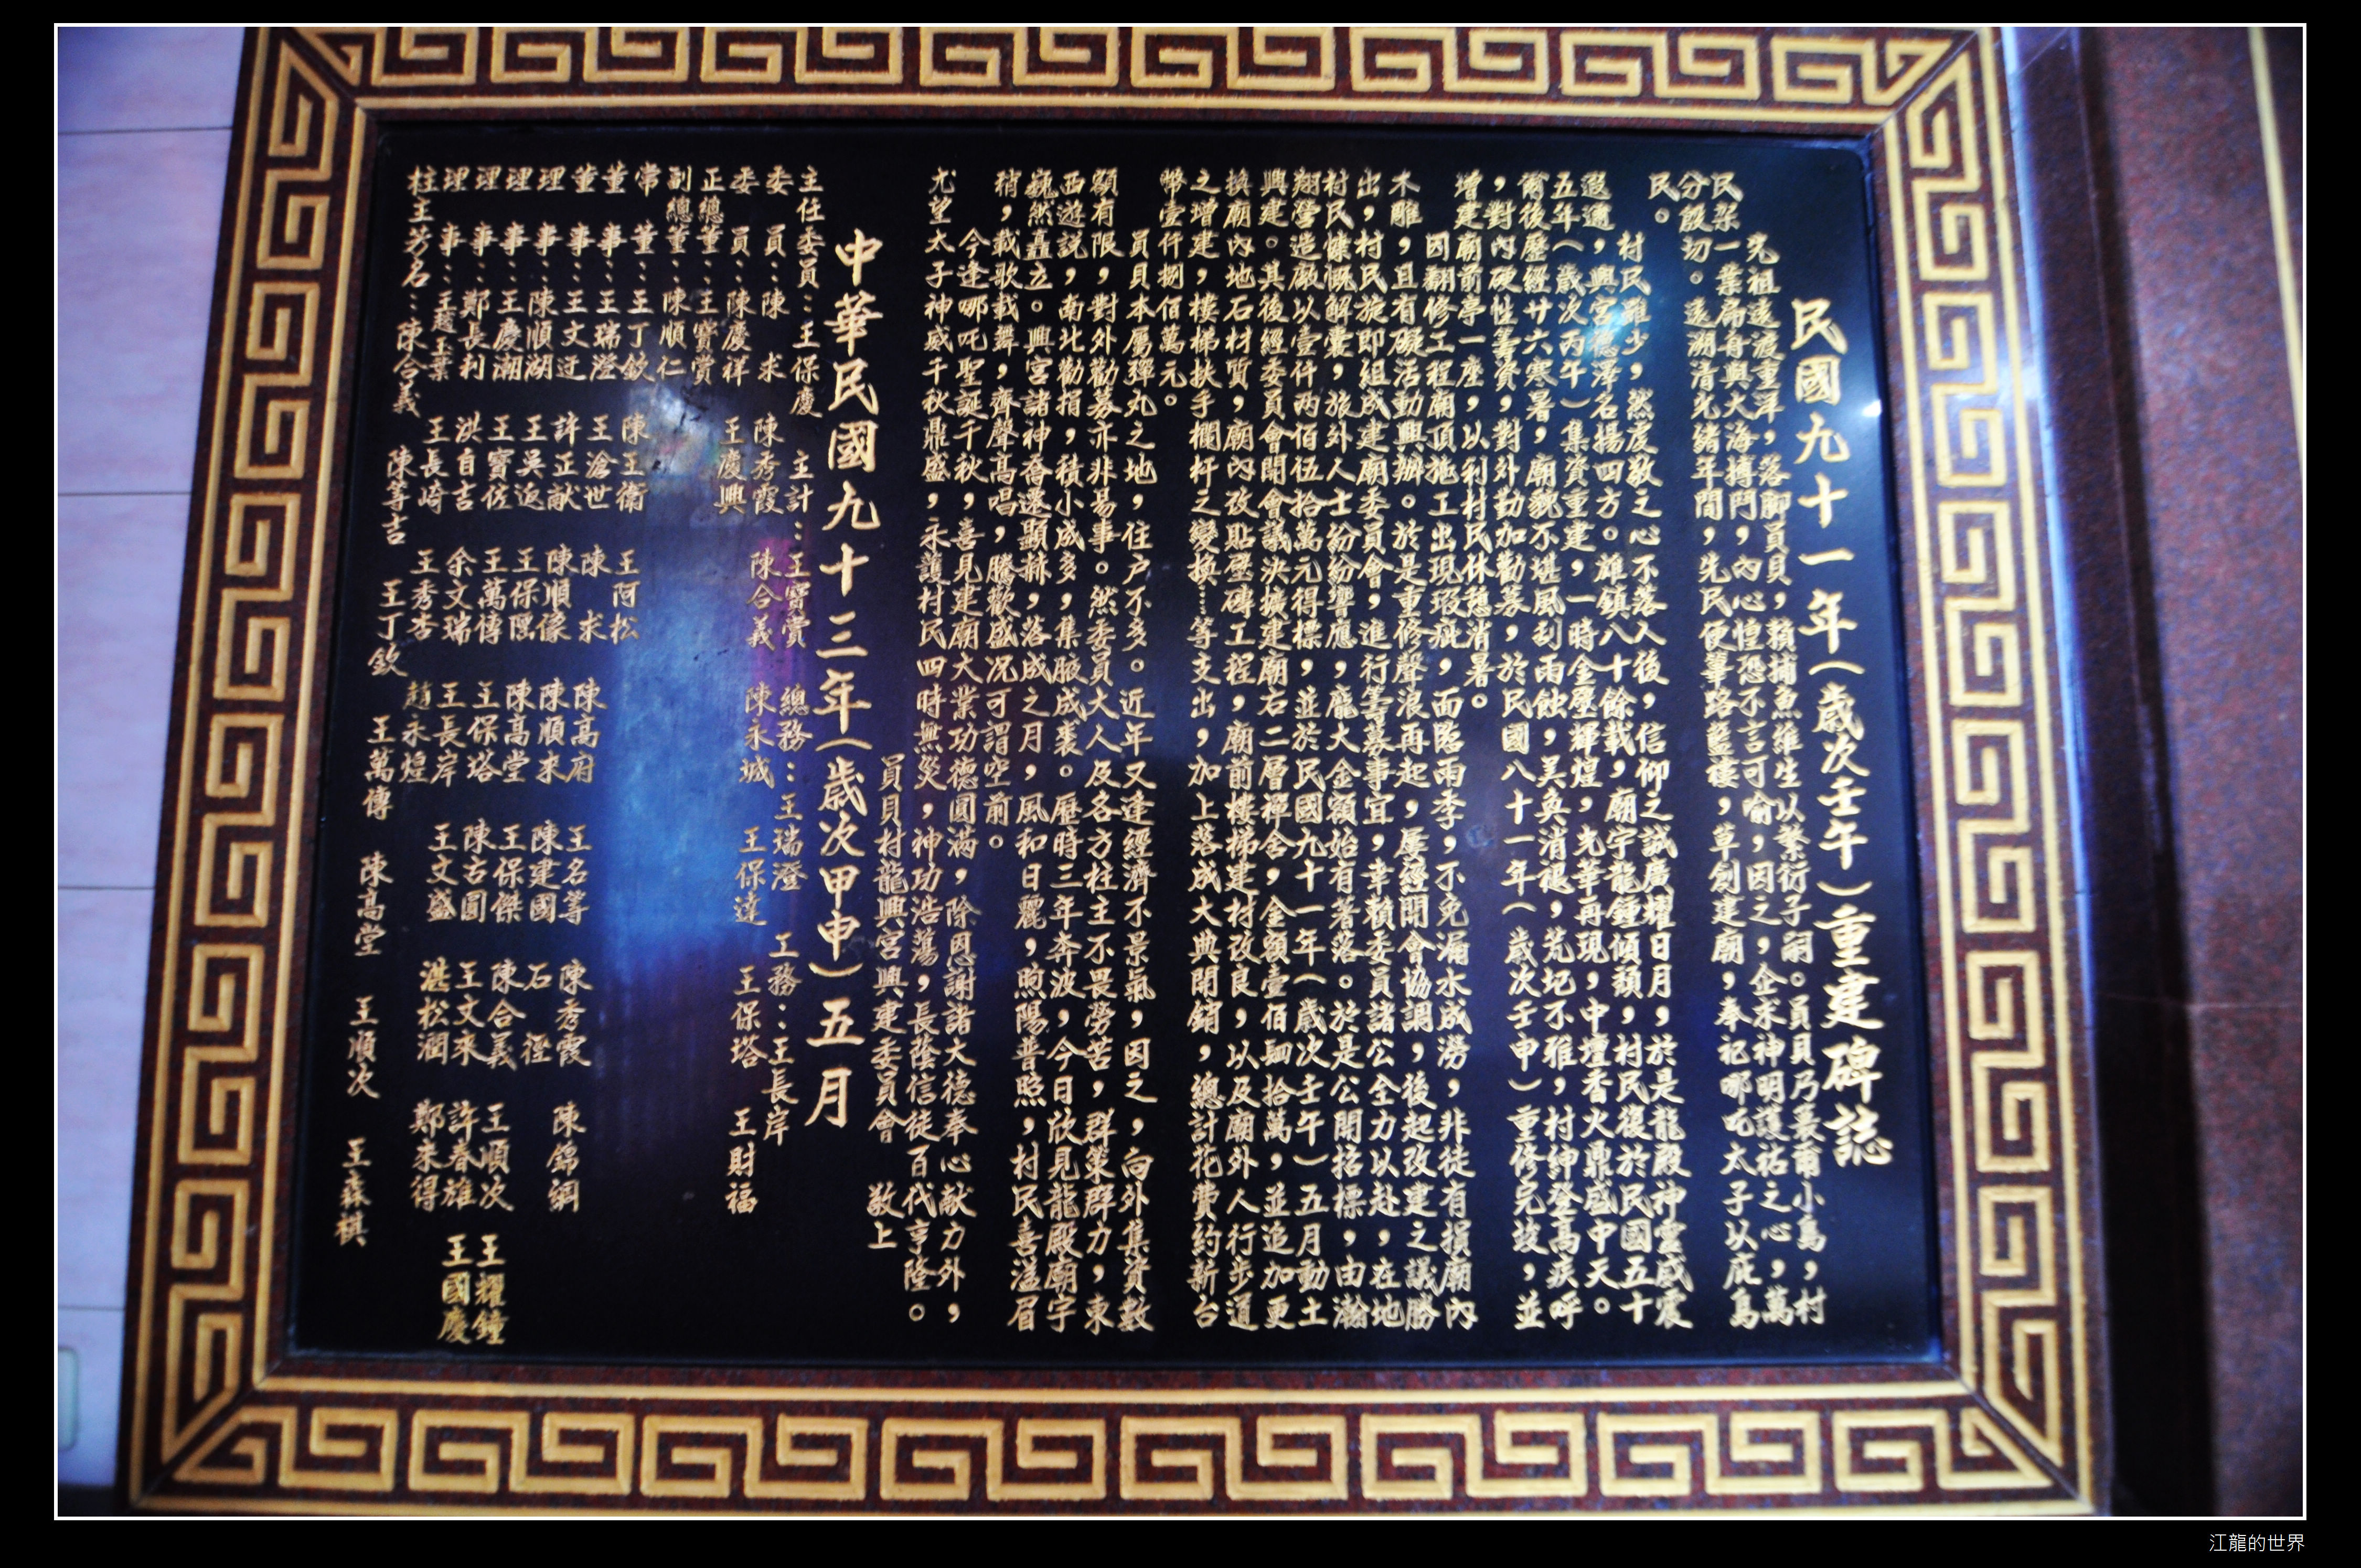 民國九十一年(歲次壬午)重建碑誌
先祖遠渡重洋,落腳員貝,賴捕魚維生以繁衍子嗣。員貝乃蕞爾小島,村
民架一葉扁舟與大海搏鬥,內心惶恐不言可喻,因之,企求神明護祐之心,萬
分殷切。遠溯清光緒年間,先民便篳路藍褸,草創建廟,奉祀哪吒太子以庇島
民。
村民雖少,然虔敬之心不落人後,信仰之誠廣耀日月,於是龍殿神靈威震
遐邇,與宮德澤名揚四方。雄鎮八十餘載,廟宇龍鍾傾頹,村民復於民國五十
五年(歲次丙午)集資重建,一時金壁輝煌,光華再現,中壇香火鼎盛中天。
爾後歷經廿六寒暑,廟貌不堪風刮雨蝕,美奐消褪,荒圮不雅,村紳登高疾呼
,對內硬性籌資,對外勤加勸募,於民國八十一年(歲次壬申)重修完竣,並
增建廟前亭一座,以利村民休憩消暑。
因翻修工程廟頂施工出現瑕疵,而臨雨季,不免漏水成澇,非徒有損廟內
木雕,且有礙活動興辦。於是重修聲浪再起,屢經開會協調,後起改建之議勝
出,村民旋即組成建廟委員會,進行籌募事宜,幸賴委員諸公全力以赴,在地
村民慷慨解囊,旅外人士紛紛響應,龐大金額始有著落。於是公開招標,由瀚
翔營造廠以壹仟兩佰伍拾萬元得標,並於民國九十一年(歲次壬午)五月動土
興建。其後經委員會開會議決擴建廟右二層禪舍,金額壹佰肆拾萬,並追加更
換廟內地石材質,廟內改貼壁磚工程,廟前樓梯建材改良,以及廟外人行步道
之增建,樓梯扶手欄杆之變換……等支出,加上落成大典開銷,總計花費約新台
幣壹仟捌佰萬元。
員貝本屬彈丸之地,住戶不多。近年又逢經濟不景氣,因之,向外集資數
額有限,對外勸募亦非易事。然委員大人及各方柱主不畏勞苦,群策群力,東
西遊說,南北勸捐,積小成多,集腋成裘。歷時三年奔波,今日欣見龍殿廟宇
巍然矗立。興宮諸神喬遷顯赫,落成之月,風和日麗,煦陽普照,村民喜溢眉
稍,載歌載舞,齊聲高唱,騰歡盛況可謂空前。
今逢哪吒聖誕千秋,喜見建廟大業功德圓滿,除恩謝諸大德奉心獻力外,
尤望太子神威千秋鼎盛,永護村民四時無災,神功浩蕩,長蔭信徒百代亨隆。
員貝村龍興宮興建委員會 敬上
中華民國九十三年(歲次甲申)五月
主任委員:王保慶 主計:王寶賞 總務:王瑞澄 工務:王長岸
委 員:陳 求 陳秀霞 陳合義 陳永城 王保達 王保塔 王財福
委 員:陳慶祥 王慶興
正總董:王寶賞
副總董:陳順仁
常 董:王丁欽 陳王衛 王阿松
董 事:王瑞澄 王滄世 陳 求 陳高府 王名等 陳秀霞 陳錦綢
董 事:王文迂 許正献 陳順像 陳順來 陳建國 石 徑
理 事:陳順湖 王吳返 王保陞 陳高堂 王保傑 陳合義 王順次 王耀鐘
理 事:王慶潮 王寶佐 王萬傳 王保塔 陳古圓 王文來 許春雄 王國慶
理 事:鄭長利 洪自吉 余文瑞 王長岸 王文盛 湛松潤 鄭朱得
理 事:王趙玉葉 王長崎 王秀杏 趙永煌
柱主芳名:陳合義 陳等吉 王丁欽 王萬傳 陳高堂 王順次 王森棋
江龍的世界